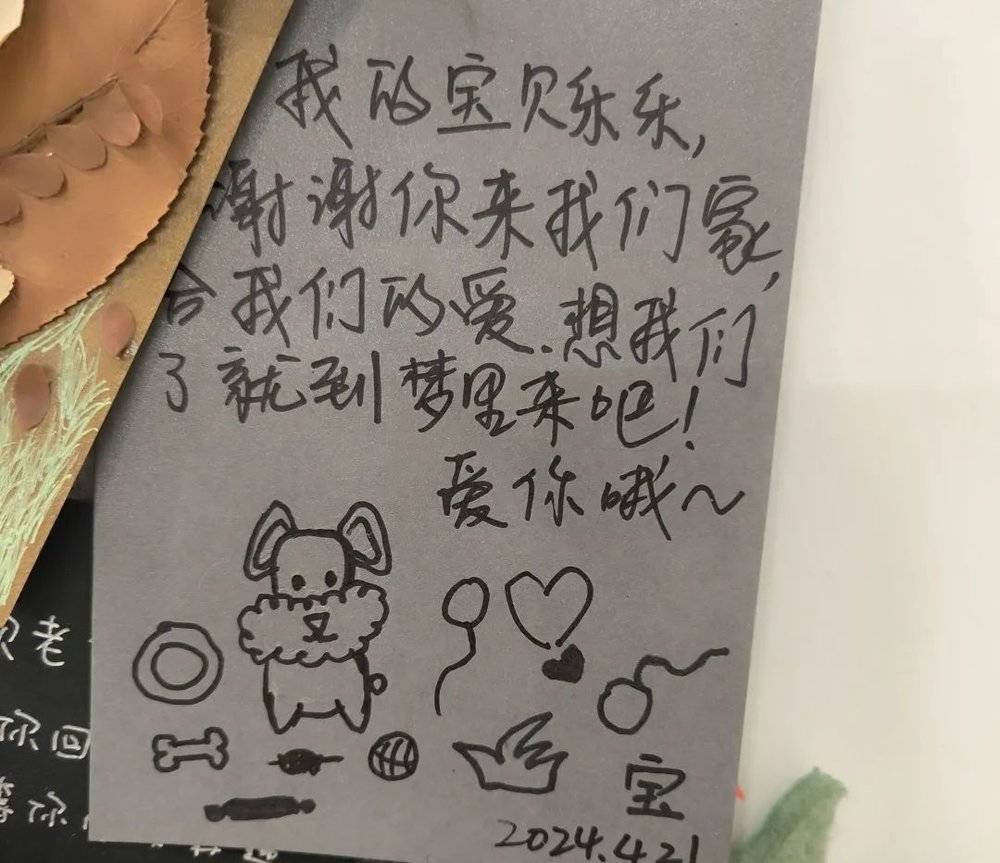 我的宝贝乐乐,
谢谢你来我们家,
给我们的爱.想我们
了就到梦里来吧!
爱你哦~
宝
2024.4.21
老
你回
等你